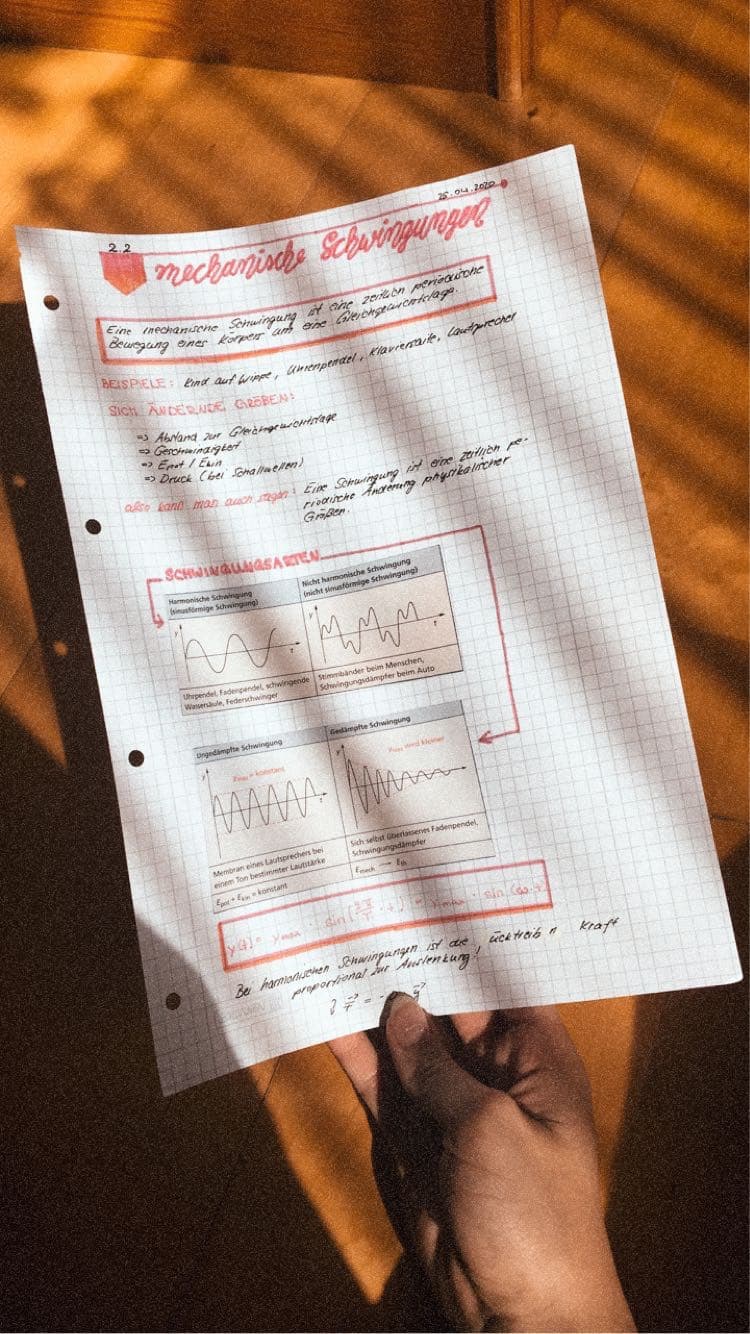 25.04.2020
2.2
mechanische Schwingungen
Eine mechanische Schwingung ist eine zeitlich periodische
Bewegung eines Körpers um eine Gleichgewichtslage.
BEISPIELE: Kind auf Wippe, Uhrenpendel, Klaviersaite, Lautsprecher
SICH ÄNDERNDE GRÖßEN:
=> Abstand zur Gleichgewichtslage
=> Geschwindigkeit
=> Epot / Ekin
=> Druck (bei Schallwellen)
also kann man auch sagen: Eine Schwingung ist eine zeitlich pe-
riodische Änderung physikalischer
Größen.
SCHWINGUNGSARTEN
Harmonische Schwingung
(sinusförmige Schwingung)
Nicht harmonische Schwingung
(nicht sinusförmige Schwingung)
y
t
y
t
Uhrpendel, Fadenpendel, schwingende
Wassersäule, Federschwinger
Stimmbänder beim Menschen,
Schwingungsdämpfer beim Auto
Ungedämpfte Schwingung
Gedämpfte Schwingung
ymax = konstant
ymax wird kleiner
y
t
y
t
Membran eines Lautsprechers bei
einem Ton bestimmter Lautstärke
Sich selbst überlassenes Fadenpendel,
Schwingungsdämpfer
Epot + Ekin = konstant
Emech → Eth
y(t) = ymax · sin(2π/T · t) = ymax · sin(ω · t)
Bei harmonischen Schwingungen ist die Kraft
proportional zur Auslenkung